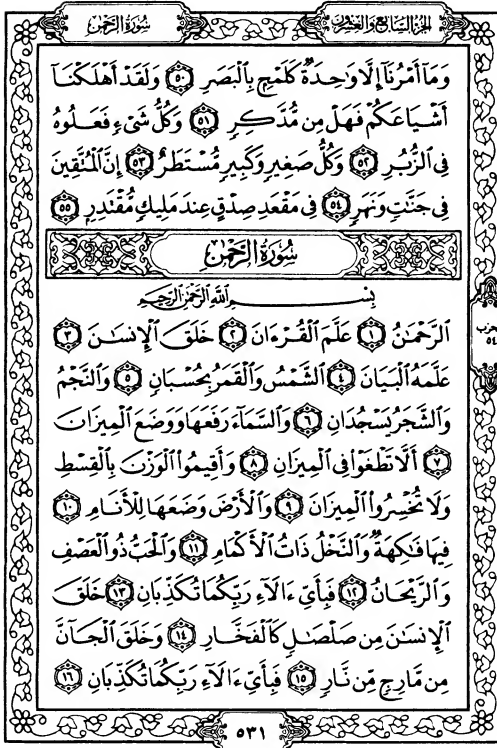 سُورَةُ الرَّحۡمٰن
الجُزءُ السَّابِعُ وَالعِشرُونَ
وَمَآ أَمۡرُنَآ إِلَّا وَٰحِدَةٞ كَلَمۡحِۭ بِٱلۡبَصَرِ ٥٠ وَلَقَدۡ أَهۡلَكۡنَآ
أَشۡيَاعَكُمۡ فَهَلۡ مِن مُّدَّكِرٖ ٥١ وَكُلُّ شَيۡءٖ فَعَلُوهُ
فِي ٱلزُّبُرِ ٥٢ وَكُلُّ صَغِيرٖ وَكَبِيرٖ مُّسۡتَطَرٌ ٥٣ إِنَّ ٱلۡمُتَّقِينَ
فِي جَنَّٰتٖ وَنَهَرٖ ٥٤ فِي مَقۡعَدِ صِدۡقٍ عِندَ مَلِيكٖ مُّقۡتَدِرِۭ ٥٥
سُورَةُ الرَّحۡمٰن
بِسۡمِ ٱللَّهِ ٱلرَّحۡمَٰنِ ٱلرَّحِيمِ
ٱلرَّحۡمَٰنُ ١ عَلَّمَ ٱلۡقُرۡءَانَ ٢ خَلَقَ ٱلۡإِنسَٰنَ ٣
عَلَّمَهُ ٱلۡبَيَانَ ٤ ٱلشَّمۡسُ وَٱلۡقَمَرُ بِحُسۡبَانٖ ٥ وَٱلنَّجۡمُ
وَٱلشَّجَرُ يَسۡجُدَانِ ٦ وَٱلسَّمَآءَ رَفَعَهَا وَوَضَعَ ٱلۡمِيزَانَ
٧ أَلَّا تَطۡغَوۡاْ فِي ٱلۡمِيزَانِ ٨ وَأَقِيمُواْ ٱلۡوَزۡنَ بِٱلۡقِسۡطِ
وَلَا تُخۡسِرُواْ ٱلۡمِيزَانَ ٩ وَٱلۡأَرۡضَ وَضَعَهَا لِلۡأَنَامِ ١٠
فِيهَا فَٰكِهَةٞ وَٱلنَّخۡلُ ذَاتُ ٱلۡأَكۡمَامِ ١١ وَٱلۡحَبُّ ذُو ٱلۡعَصۡفِ
وَٱلرَّيۡحَانُ ١٢ فَبِأَيِّ ءَالَآءِ رَبِّكُمَا تُكَذِّبَانِ ١٣ خَلَقَ
ٱلۡإِنسَٰنَ مِن صَلۡصَٰلٖ كَٱلۡفَخَّارِ ١٤ وَخَلَقَ ٱلۡجَآنَّ
مِن مَّارِجٖ مِّن نَّارٖ ١٥ فَبِأَيِّ ءَالَآءِ رَبِّكُمَا تُكَذِّبَانِ ١٦
حزب
٥٤
٥٣١